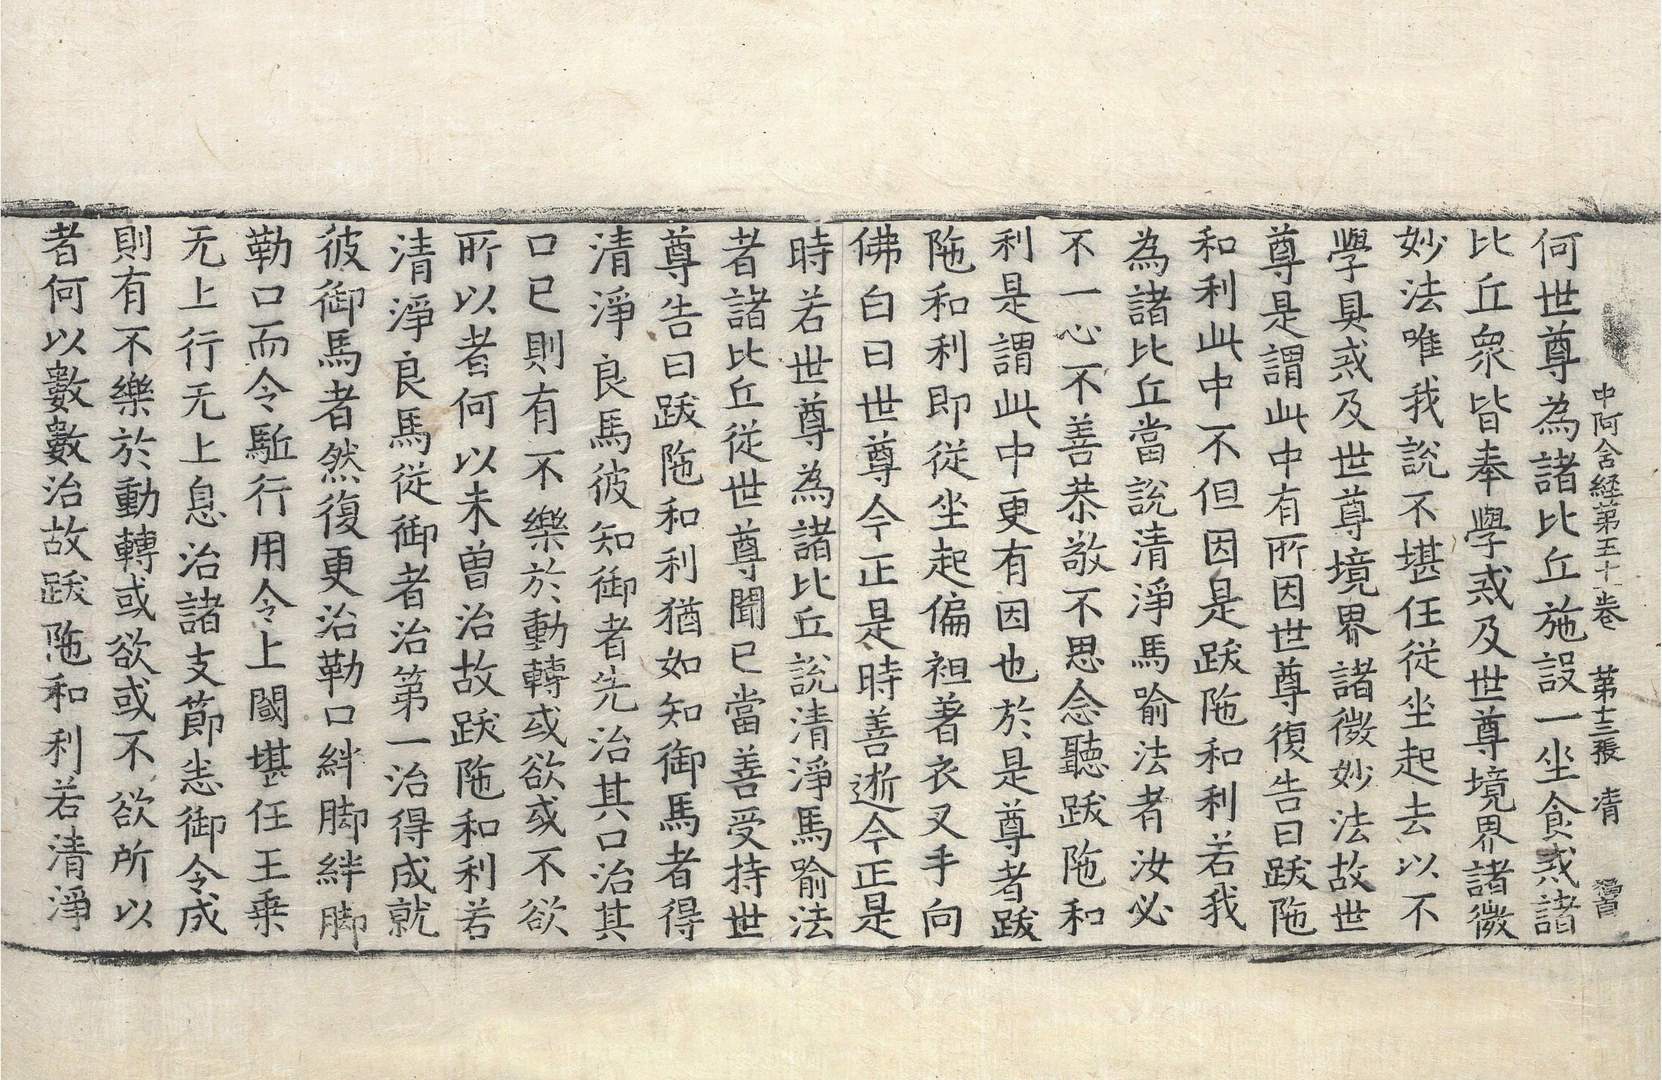 中阿含経第五十一卷 第十三張 清
何世尊為諸比丘施設一坐食戒諸
比丘衆皆奉學戒及世尊境界諸微
妙法唯我說不堪任從坐起去以不
學具戒及世尊境界諸微妙法故世
尊是謂此中有所因世尊復告曰跋陁
和利此中不但因是跋陁和利若我
為諸比丘當說清淨馬喻法者汝必
不一心不善恭敬不思念聽跋陁和
利是謂此中更有因也於是尊者跋
陁和利即從坐起偏袒著衣叉手向
佛白曰世尊今正是時善逝今正是
時若世尊為諸比丘說清淨馬喻法
者諸比丘從世尊聞已當善受持世
尊告曰跋陁和利猶如知御馬者得
清淨良馬彼知御者先治其口治其
口已則有不樂於動轉或欲或不欲
所以者何以未曾治故跋陁和利若
清淨良馬從御者治第一治得成就
彼御馬者然復更治勒口絆脚絆脚
勒口而令駈行用令上閾堪任王乗
无上行无上息治諸支莭悉御令成
則有不樂於動轉或欲或不欲所以
者何以數數治故跋陁和利若清淨